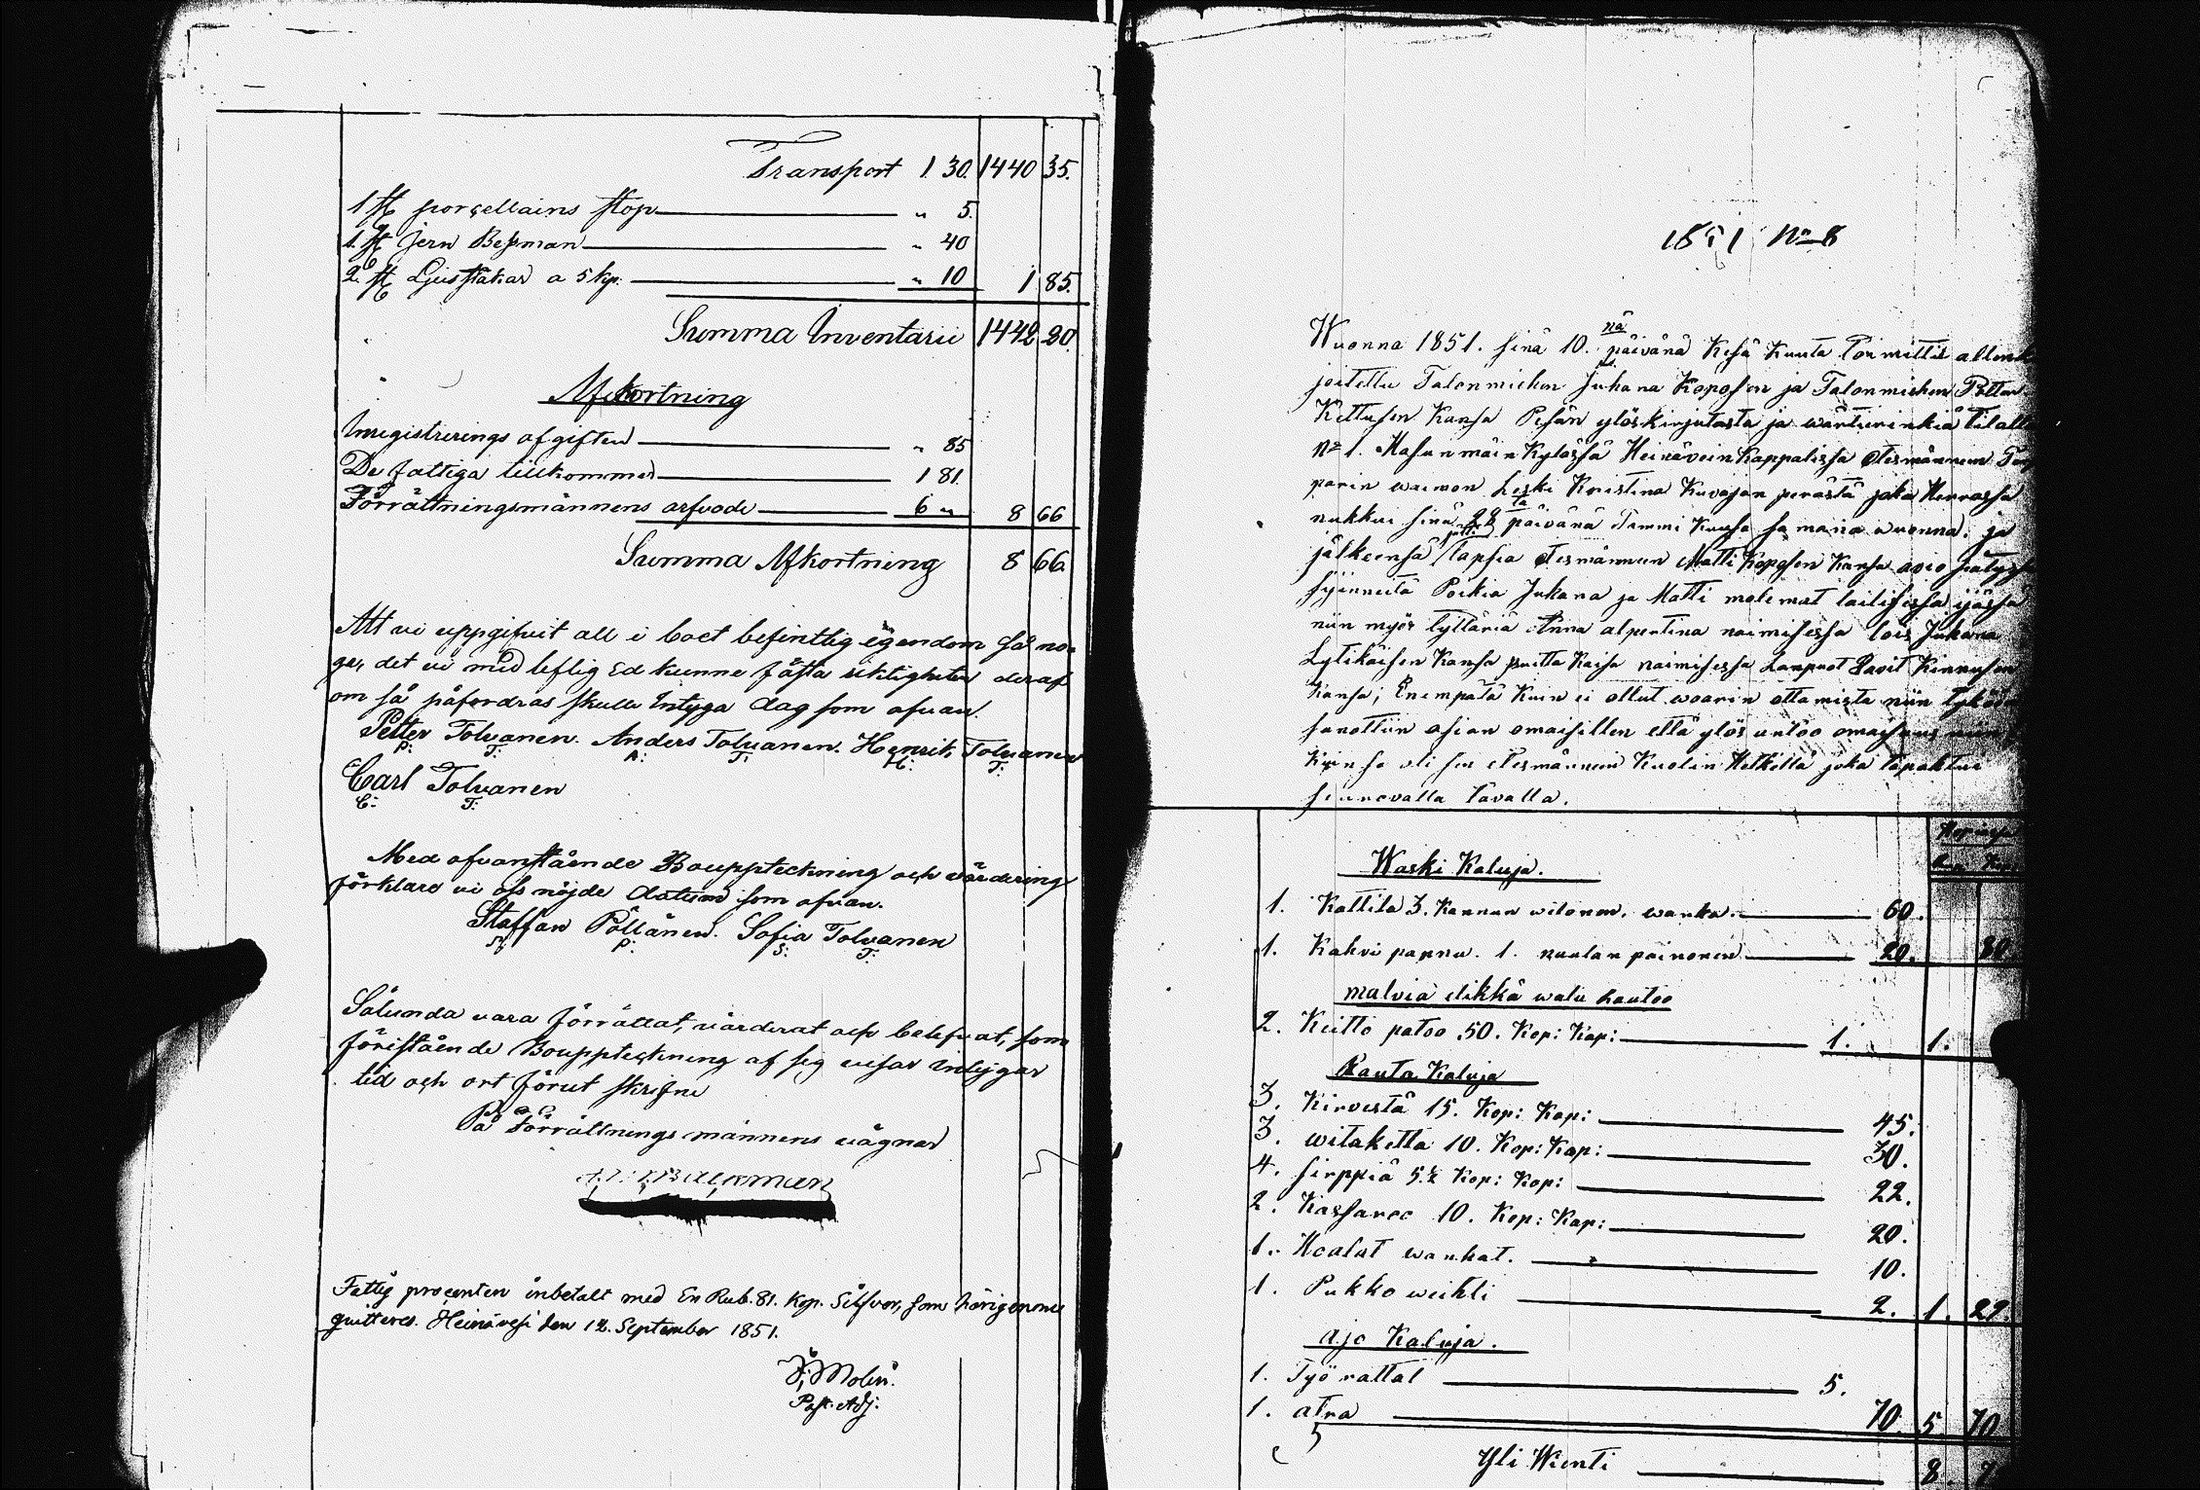 Transport 1. 30. 1440 35.
1 st porçellains stop " 5.
1. st Jern Bessman " 40
2. st Ljusstakar a 5 kp. " 10 1 85.
Summa Inventarii 1442 20.
Afkortning
Inregistrerings afgiften " 85
De fattiga tillkommer 1 81.
Förrättningsmännens arfvode 6 " 8 66
Summa Afkortning 8 66
Att vi uppgifvit all i boet befintlig egendom så no-
ga, det vi med liflig Ed kunne fästa riktigheten deraf
om så påfordras skulle Intyga dag som ofvan.
Petter Tolvanen. Anders Tolvanen. Henrik Tolvanen
P: T: A: T: H: T:
Carl Tolvanen
C: T:
Med ofvanstående Bouppteckning och värdering
förklare vi oss nöjde datum som ofvan.
Staffan Pöllänen. Sofia Tolvanen
S: P: S: T:
Sålunda vara förrättat, värderat och belefvat, som
föristående Bouppteckning af sig visar intygar
tid och ort förut skrifne
På Förrättnings männens vägnar
Backman
Fattig procenten inbetalt med En Rub. 81. Kop. Silfver, som härigenom
quitteres. Heinävesi den 12. September 1851.
Molin.
Past. Adj.
1851 No 8
Wuonna 1851. sinä 10. nä päivänä Kesä Kuuta Toimittit allenk
joitettu Talonmiehen Juhana Koposen ja Talonmiehen Pettar
Kettusen Kansa Pesän ylöskirjutusta ja wärteerinkiä tilalla
No 1. Hasunmäin Kylässä Heinävein Kappelissa Etesmännen
parin waimon Leski Kristina Kuvajan perästä joka Herrassa
nukkui sinä 28 ta päivänä Tammi Kuusa samana wuonna. ja
jälkeensä jätti lapsia Etesmännen Matti Koposen Kansa avio säätyssä
syinneitä Poikia Juhana ja Matti molemat lailisessa ijässä
niin myös tyttäriä Anna alpertina naimisessa lois Juhana
Lytikäisen Kansa Britta Kaisa naimisessa Lampuot Tavit Kinnusen
Kansa; Enempätä Kuin ei ollut woorin ottamista niin tykönä
sanottiin asian omaisillen että ylös antoo omaisuus niin
Kuin se oli sen Etesmännen Kuolin Hetkellä joka tapahtui
seuraavalla tavalla.
Waski Kaluja.
1. Kattila 3. Kannun wetonen, wanha. 60.
1. Kahvi pannu. 1. naulan painonen 20. 80.
malvia elikkä walu rautoo
2. Keitto patoo .50. Kop: Kap: 1. 1.
Rauta Kaluja
3. Kirvestä 15. Kop: Kap: 45.
3. witaketta 10. Kop: Kap: 30.
4. sirppiä 5.½ Kop: Kap: 22.
2. Kassaroo 10. Kop: Kap: 20.
1. Hoalut wanhat. 10.
1. Pukko weihti 2. 1. 29.
ajo Kaluja.
1. Työ rattat 5.
1. atra 70. 5 70
Yli Wienti 8.